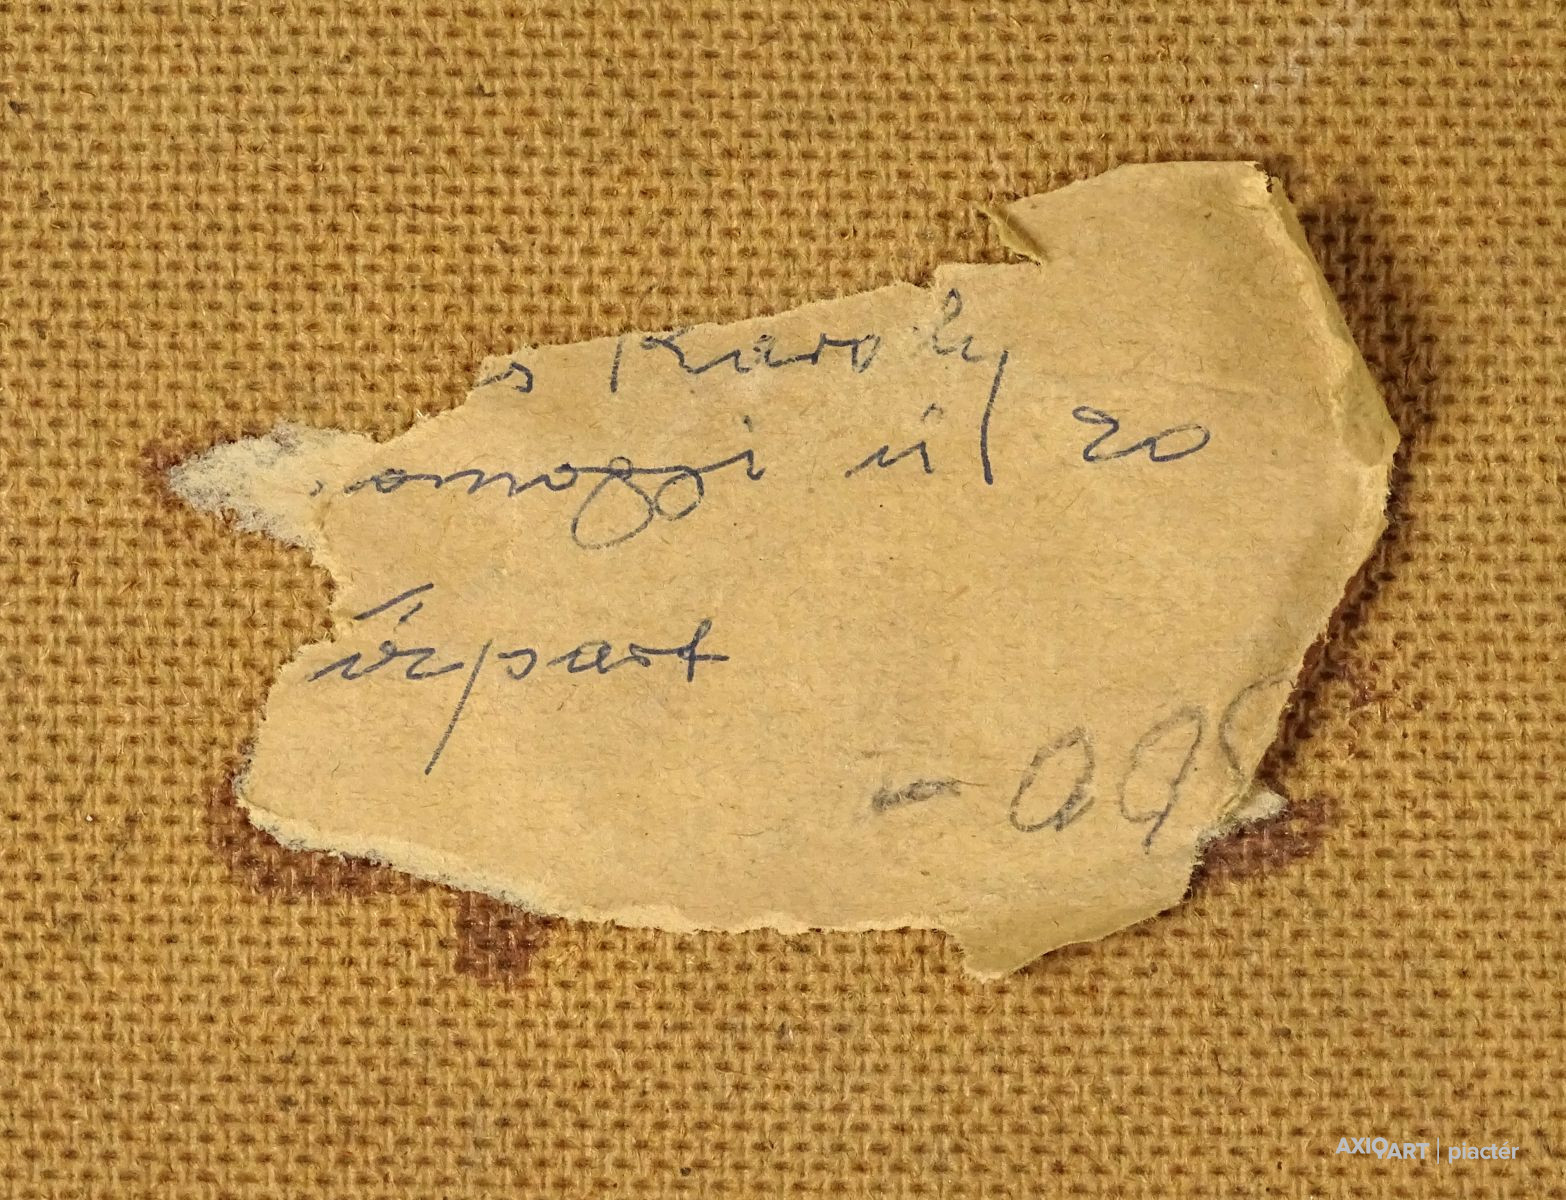 s Károly
omoggi út 20
ízpart
AXIOART | piactér